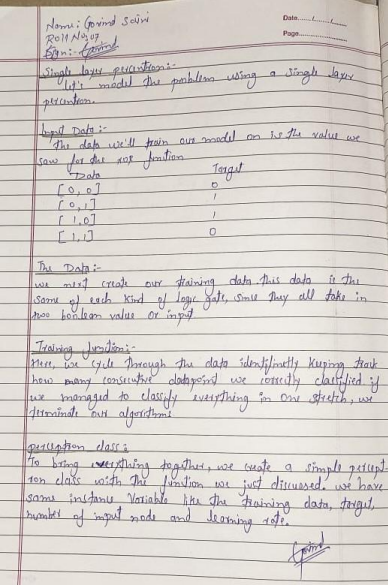 Name: Govind Saini
Roll No: 07
Sign: Govind
Date....../....../......
Page..................
Single layer percentron:-
Let's model the problem using a single layer
percentron.
Input Data:-
The data we'll train our model on is the value we
saw for the xor funtion
Data Target
[0, 0] 0
[0, 1] 1
[1, 0] 1
[1, 1] 0
The Data:-
we next create our training data. this data is the
same of each kind of logic gate, since they all take in
two boolean value or input
Training function:-
Here, we cycle through the data identifinetly keeping track
how many consecutive datapoint we correctly classified if
we managed to classify everything in one stretch, we
terminate our algorithms
perception class:
To bring everything together, we create a simple percept-
ron class with the funtion we just discussed. we have
some instance variable like the training data, target,
number of input node and learning rate.
Govind